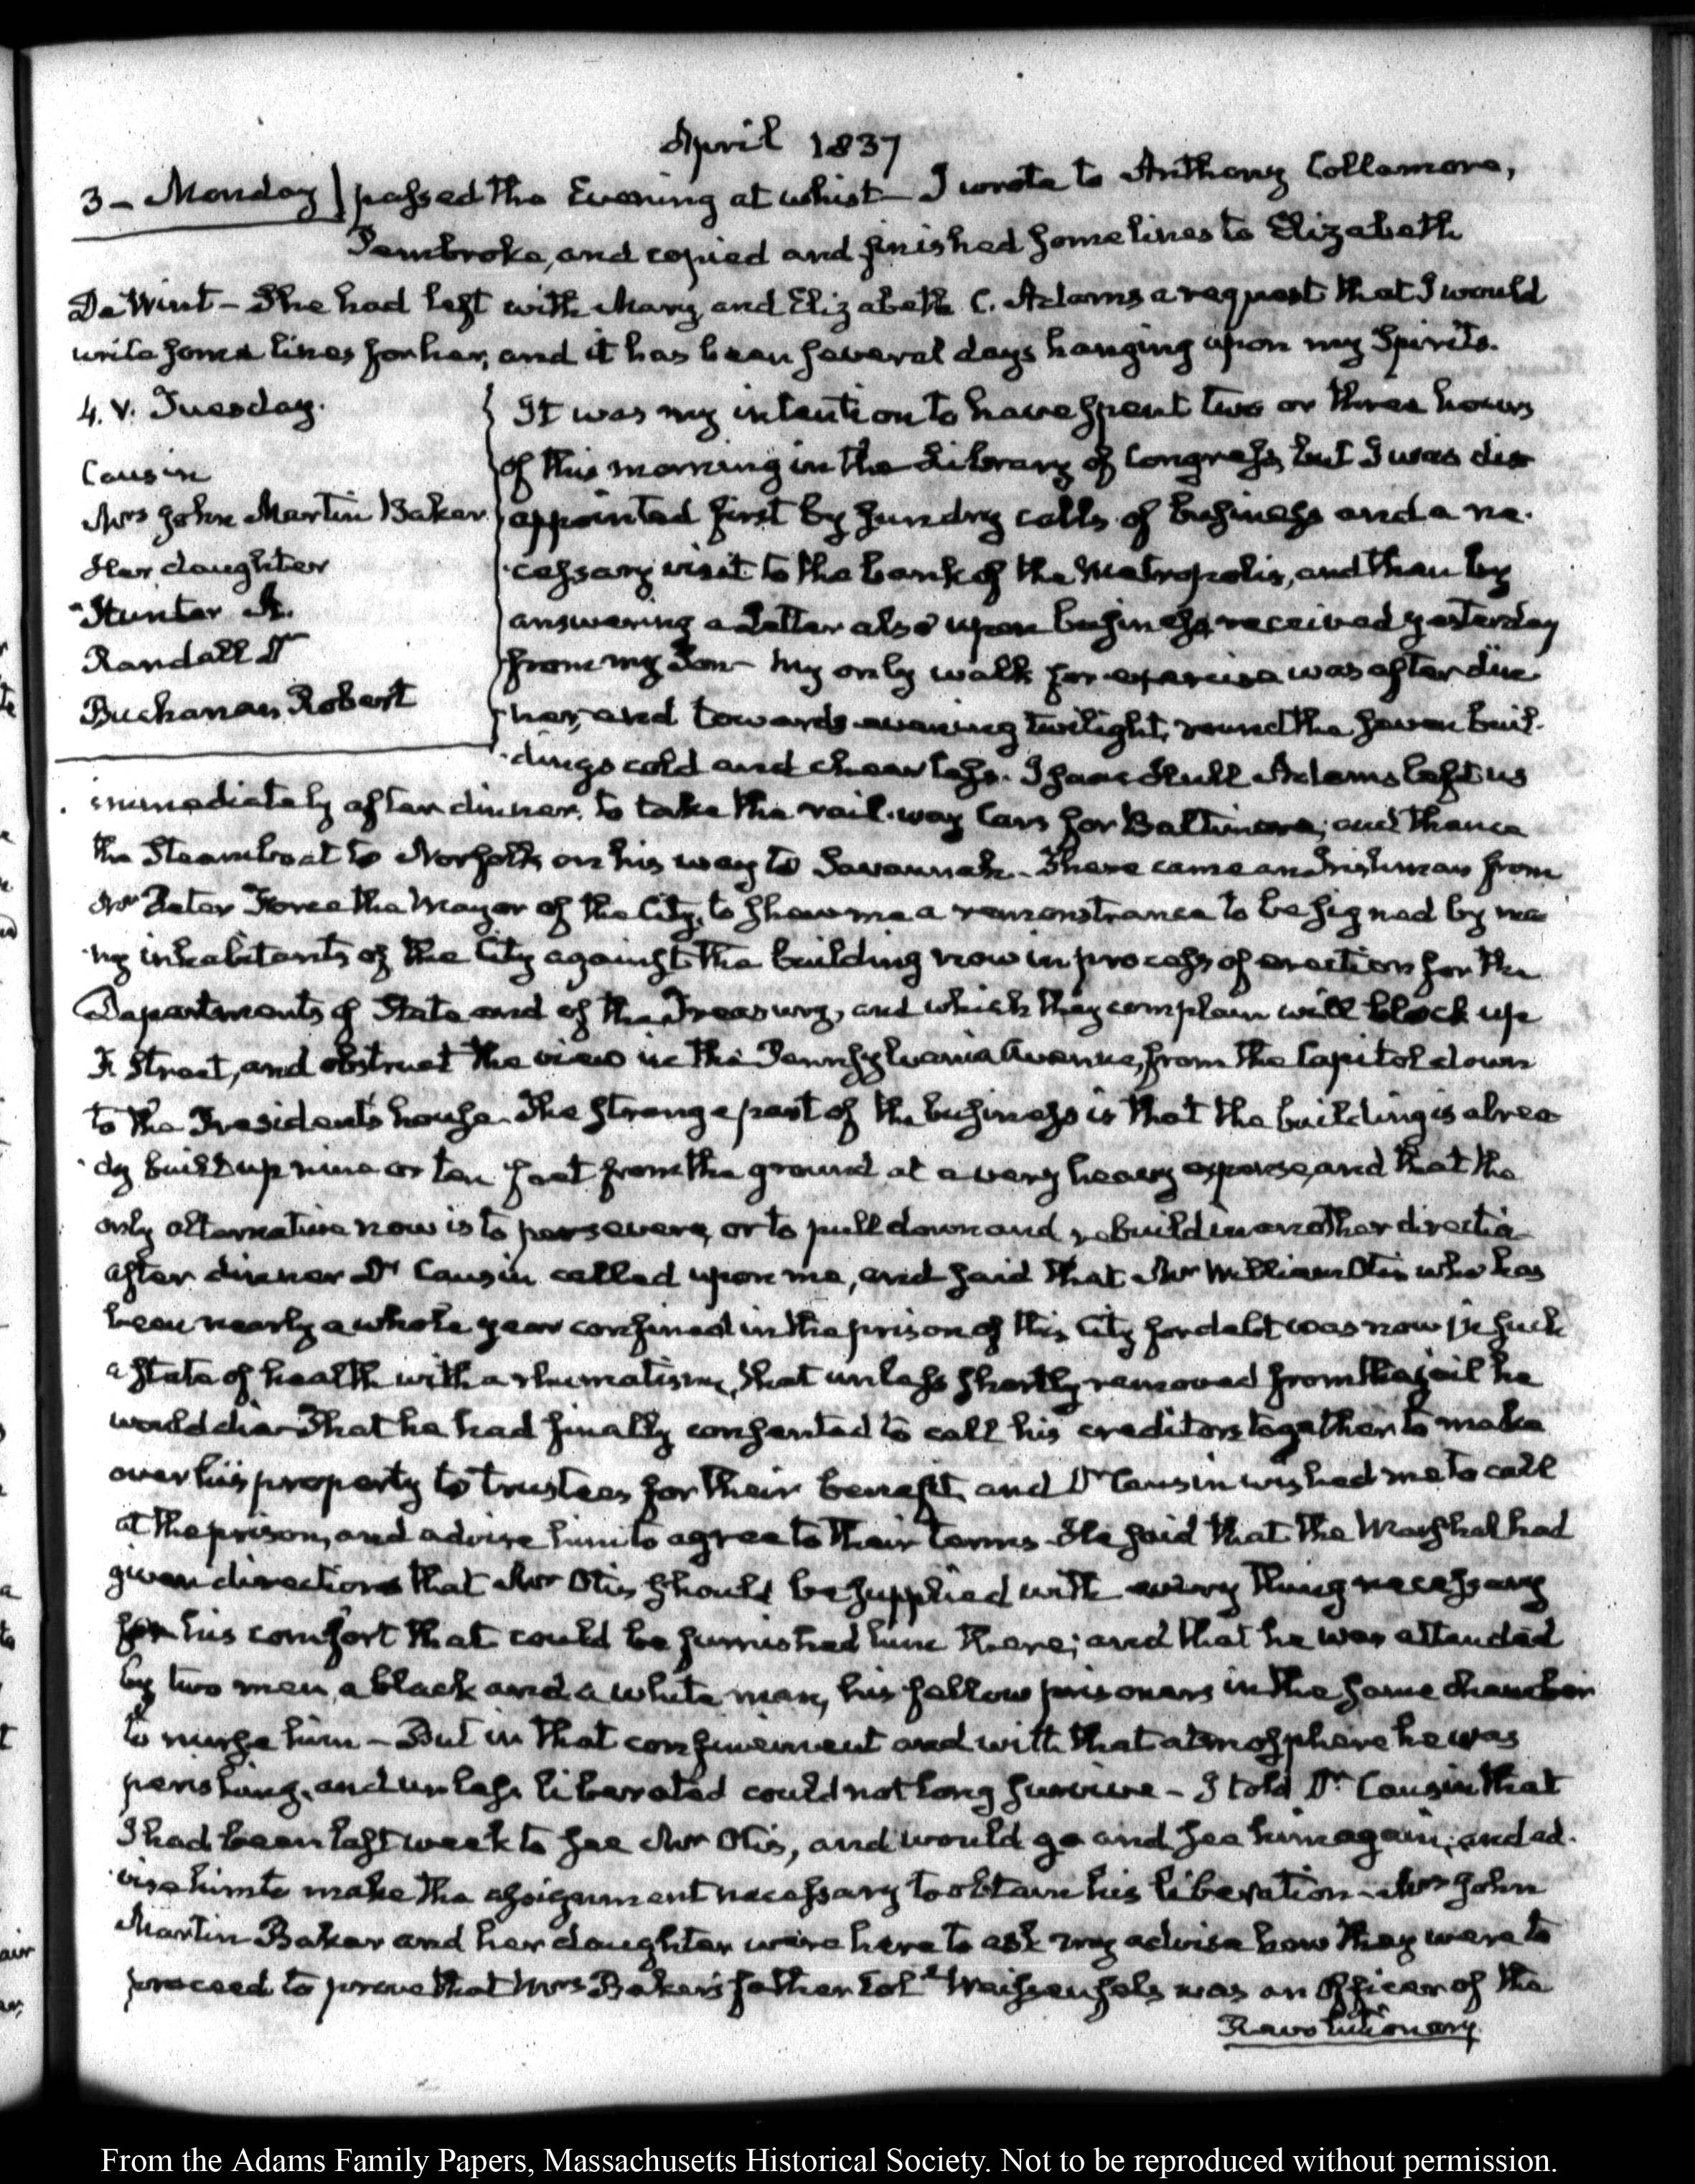 April 1837
3 - Monday passed the Evening at whist - I wrote to Anthony Collamore,
Pembroke, and copied and finished some lines to Elizabeth
De Wint - She had left with Mary and Elizabeth C. Adams a request that I would
write some lines for her, and it has been several days hanging upon my Spirits.
4. V. Tuesday.
Causin
Mrs John Martin Baker
Her daughter
Hunter A.
Randall Dr
Buchanan Robert
It was my intention to have spent two or three hours
of this morning in the Library of Congress, but I was dis
appointed first by sundry calls of business and a ne-
cessary visit to the bank of the Metropolis, and then by
answering a Letter also upon business received yesterday
from my Son - My only walk for exercise was after din
ner, and towards evening twilight, round the seven buil-
dings cold and cheerless. Isaac Hull Adams left us
immediately after dinner, to take the rail-way Cars for Baltimore; and thence
the Steamboat to Norfolk on his way to Savannah - There came an Irishman from
Mr Peter Force the Mayor of the City, to shew me a remonstrance to be signed by ma
ny inhabitants of the City against the building now in process of erection for the
Departments of State and of the Treasury, and which they complain will block up
F Street, and obstruct the view in the Pennsylvania Avenue, from the Capitol down
to the President's house. The strange part of the business is that the building is alrea
dy built up nine or ten feet from the ground at a very heavy expense, and that the
only alternative now is to persevere, or to pull down and rebuild in another directio
after dinner Dr Causin called upon me, and said that Mr William Otis who has
been nearly a whole year confined in the prison of this City for debt was now in such
a state of health with a rhumatism, that unless shortly removed from the jail he
would die - That he had finally consented to call his creditors together to make
over his property to trustees for their benefit, and Dr Causin wished me to call
at the prison, and advise him to agree to their terms - He said that the Marshal had
given directions that Mr Otis should be supplied with every thing necessary
for his comfort that could be furnished him there; and that he was attended
by two men, a black and a white man, his fellow prisoners in the same chamber
to nurse him - But in that confinement and with that atmosphere he was
perishing, and unless liberated could not long survive - I told Dr Causin that
I had been last week to see Mr Otis, and would go and see him again; and ad-
vise him to make the assignment necessary to obtain his liberation - Mrs John
Martin Baker and her daughter were here to ask my advise how they were to
proceed to prove that Mrs Baker's father Col. Weissenfels was an Officer of the
Revolutionary
From the Adams Family Papers, Massachusetts Historical Society. Not to be reproduced without permission.